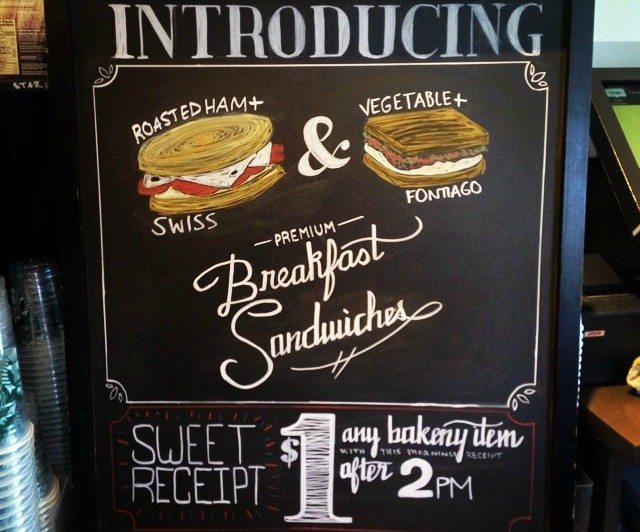 INTRODUCING
ROASTED HAM+
SWISS
&
VEGETABLE+
FONTIAGO
— PREMIUM —
Breakfast
Sandwiches
SWEET
RECEIPT
$1 any bakery item
WITH THIS MORNINGS RECEIPT
after 2PM
STAR